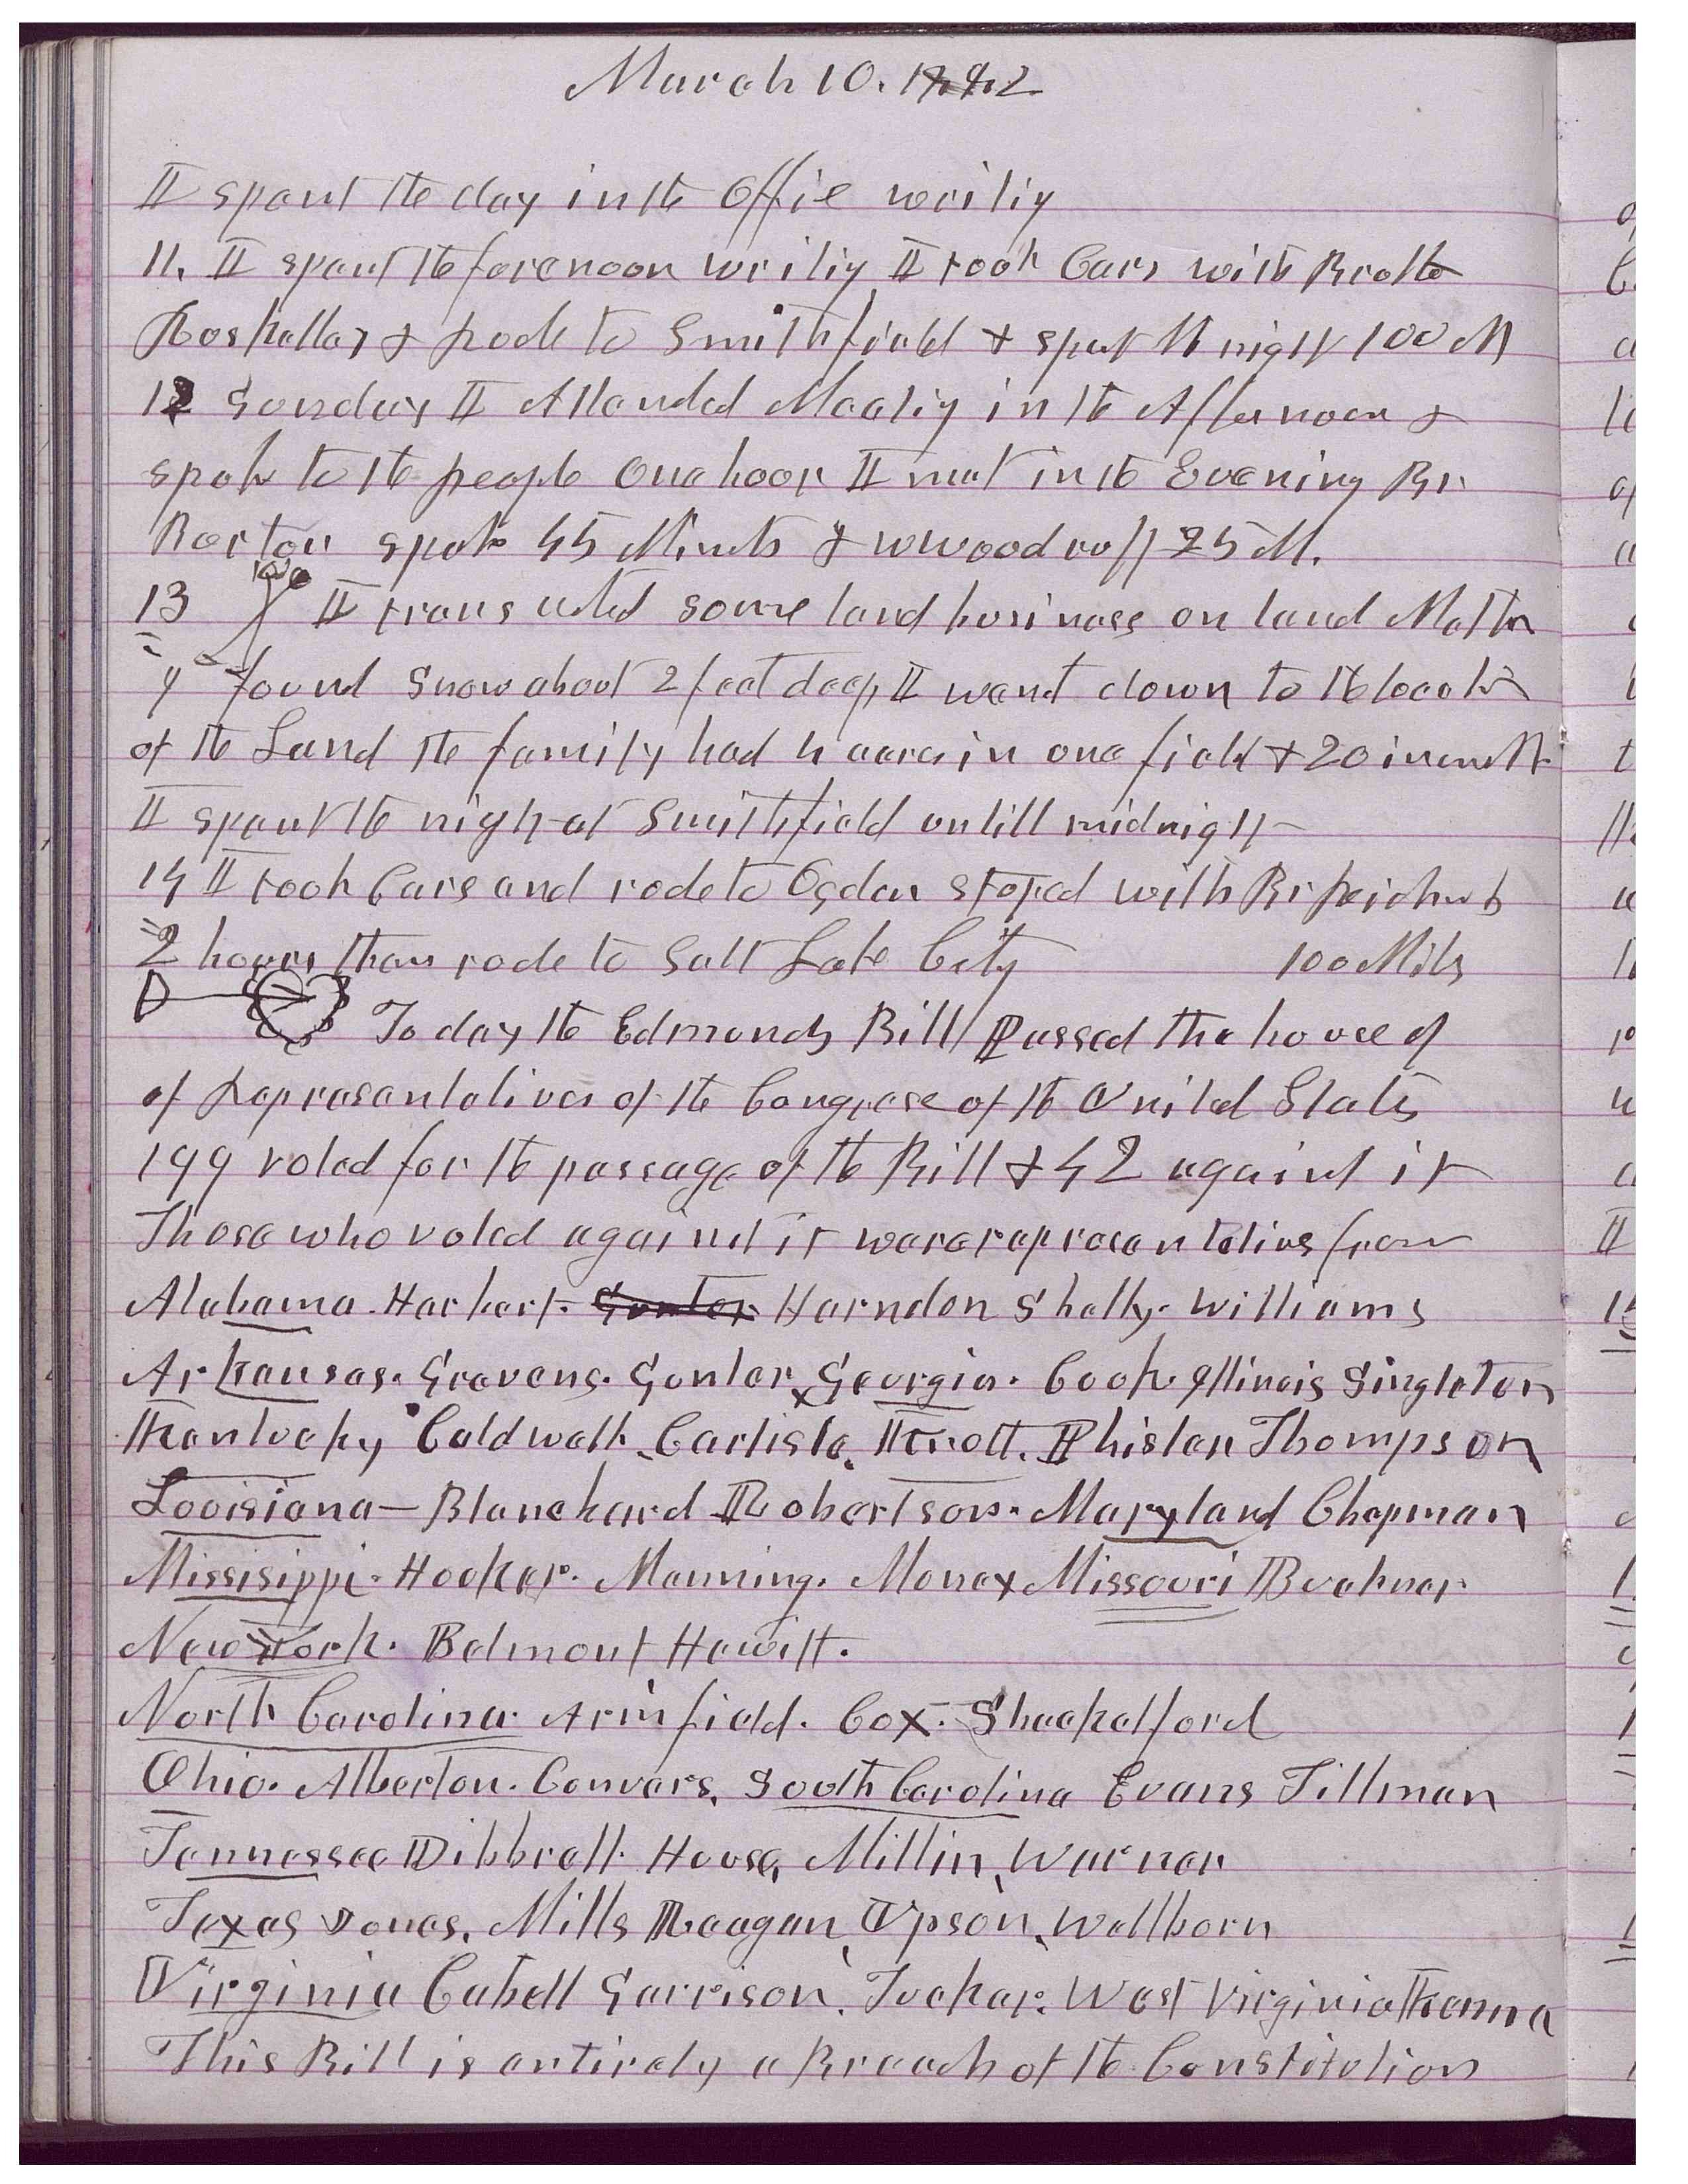 March 10. 1882
I spent the day in the Office writig
11. I spent the forenoon writig I took Cars with Brothr
Roskelley & Rode to Smithfield & spent th night 100 M
12 Sunday I Attended Meetig in the Afternoon &
spoke to the people One hour I met in the Evening Br
Barton spoke 45 Minuts & W Woodruff 25 M.
13 I transacted some land business on land Matter
& found Snow about 2 feet deep I went down to the
of the Land the family had acres in one field & 20 in anothr
I spent the night at Smithfield untill midnight
14 I took Cars and rode to Ogden stoped with Br
2 hours then rode to Salt Lake City 100 Miles
To day the Edmonds Bill Passed the house of
of Representatives of the Congress of the United States
199 voted for the passage of the Bill & 42 against it
Those who voted against it were representatives from
Alabama. Harbert. Gunter Harndon Shelly. Williams
Arkansas. Cravens. Gunter Georgia. Cook. Illinois Singleton
Kentucky Caldwell, Carlisle, Knott. Phister Thompson
Louisiana - Blanchard Robertson. Maryland Chapman
Missisippi. Hooker. Manning. Money Missouri Buckner
New York. Belmont Hewitt.
North Carolina Armfield. Cox. Shackelford
Ohio. Atherton. Convers, South Carolina Evans Tillman
Tennessee Dibbrell. House, Millin, Warner
Texas Jones, Mills Reagan, Upson, Wellborn
Virginia Cabell Garrison, Tucker. West Virginia Kenna
This Bill is entirely a Breach of the Constitution